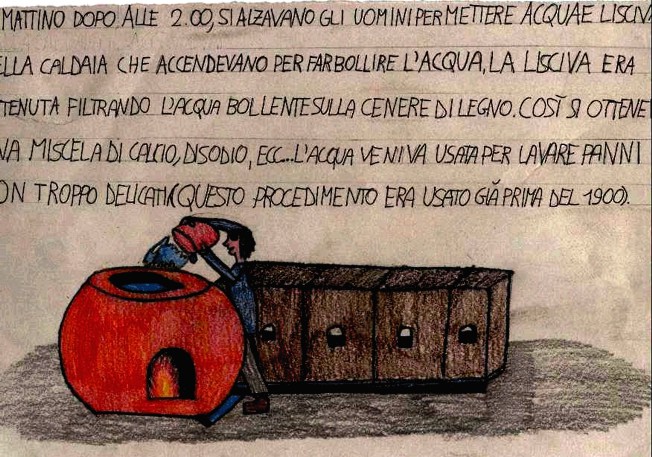 MATTINO DOPO. ALLE 2.00, SI ALZAVANO GLI UOMINI PER METTERE ACQUA E LISCIVA
ELLA CALDAIA CHE ACCENDEVANO PER FAR BOLLIRE L'ACQUA, LA LISCIVA ERA
TENUTA FILTRANDO L'ACQUA BOLLENTE SULLA CENERE DI LEGNO. COSÌ SI OTTENE
NA MISCELA DI CALCIO, DI SODIO, ECC... L'ACQUA VENIVA USATA PER LAVARE PANNI
ON TROPPO DELICATI (QUESTO PROCEDIMENTO ERA USATO GIÀ PRIMA DEL 1900).